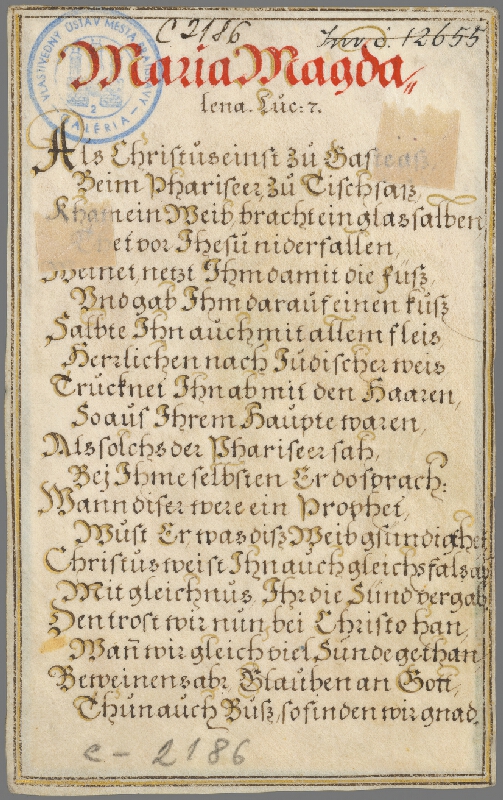 C 2186
Inv. č. 12655
VLASTIVEDNÝ ÚSTAV MESTA BRATISLAVY
2
GALÉRIA
Maria Magda
lena. Luc: 7.
Als Christus einst zu Gast aß,
Beim Phariseer, zu Tisch saß,
Kham ein Weib, bracht ein glas salben,
Thet vor Ihesu niderfallen,
Weinet, netzt Ihm damit die füß,
Vnd gab Ihm darauf einen kuß
Salbte Ihn auch mit allem fleis
Herrlichen nach Iudischer weis
Trucknet Ihn ab mit den Haaren,
So aus Ihrem Haupte waren,
Als solchs der Phariseer sah,
Bej Ihme selbsten Er do sprach:
Wann diser were ein Prophet,
Wust Er was diß Weib gsundigt het
Christus weist Ihn auch gleichsfals ab
Mit gleichnus, Ihr die Sünd vergab
Den trost wir nun bei Christo han,
Wañ wir gleich viel Sünde gethan
Beweinens abr, Glauben an Gott,
Thun auch Buß, so finden wir gnad.
C - 2186